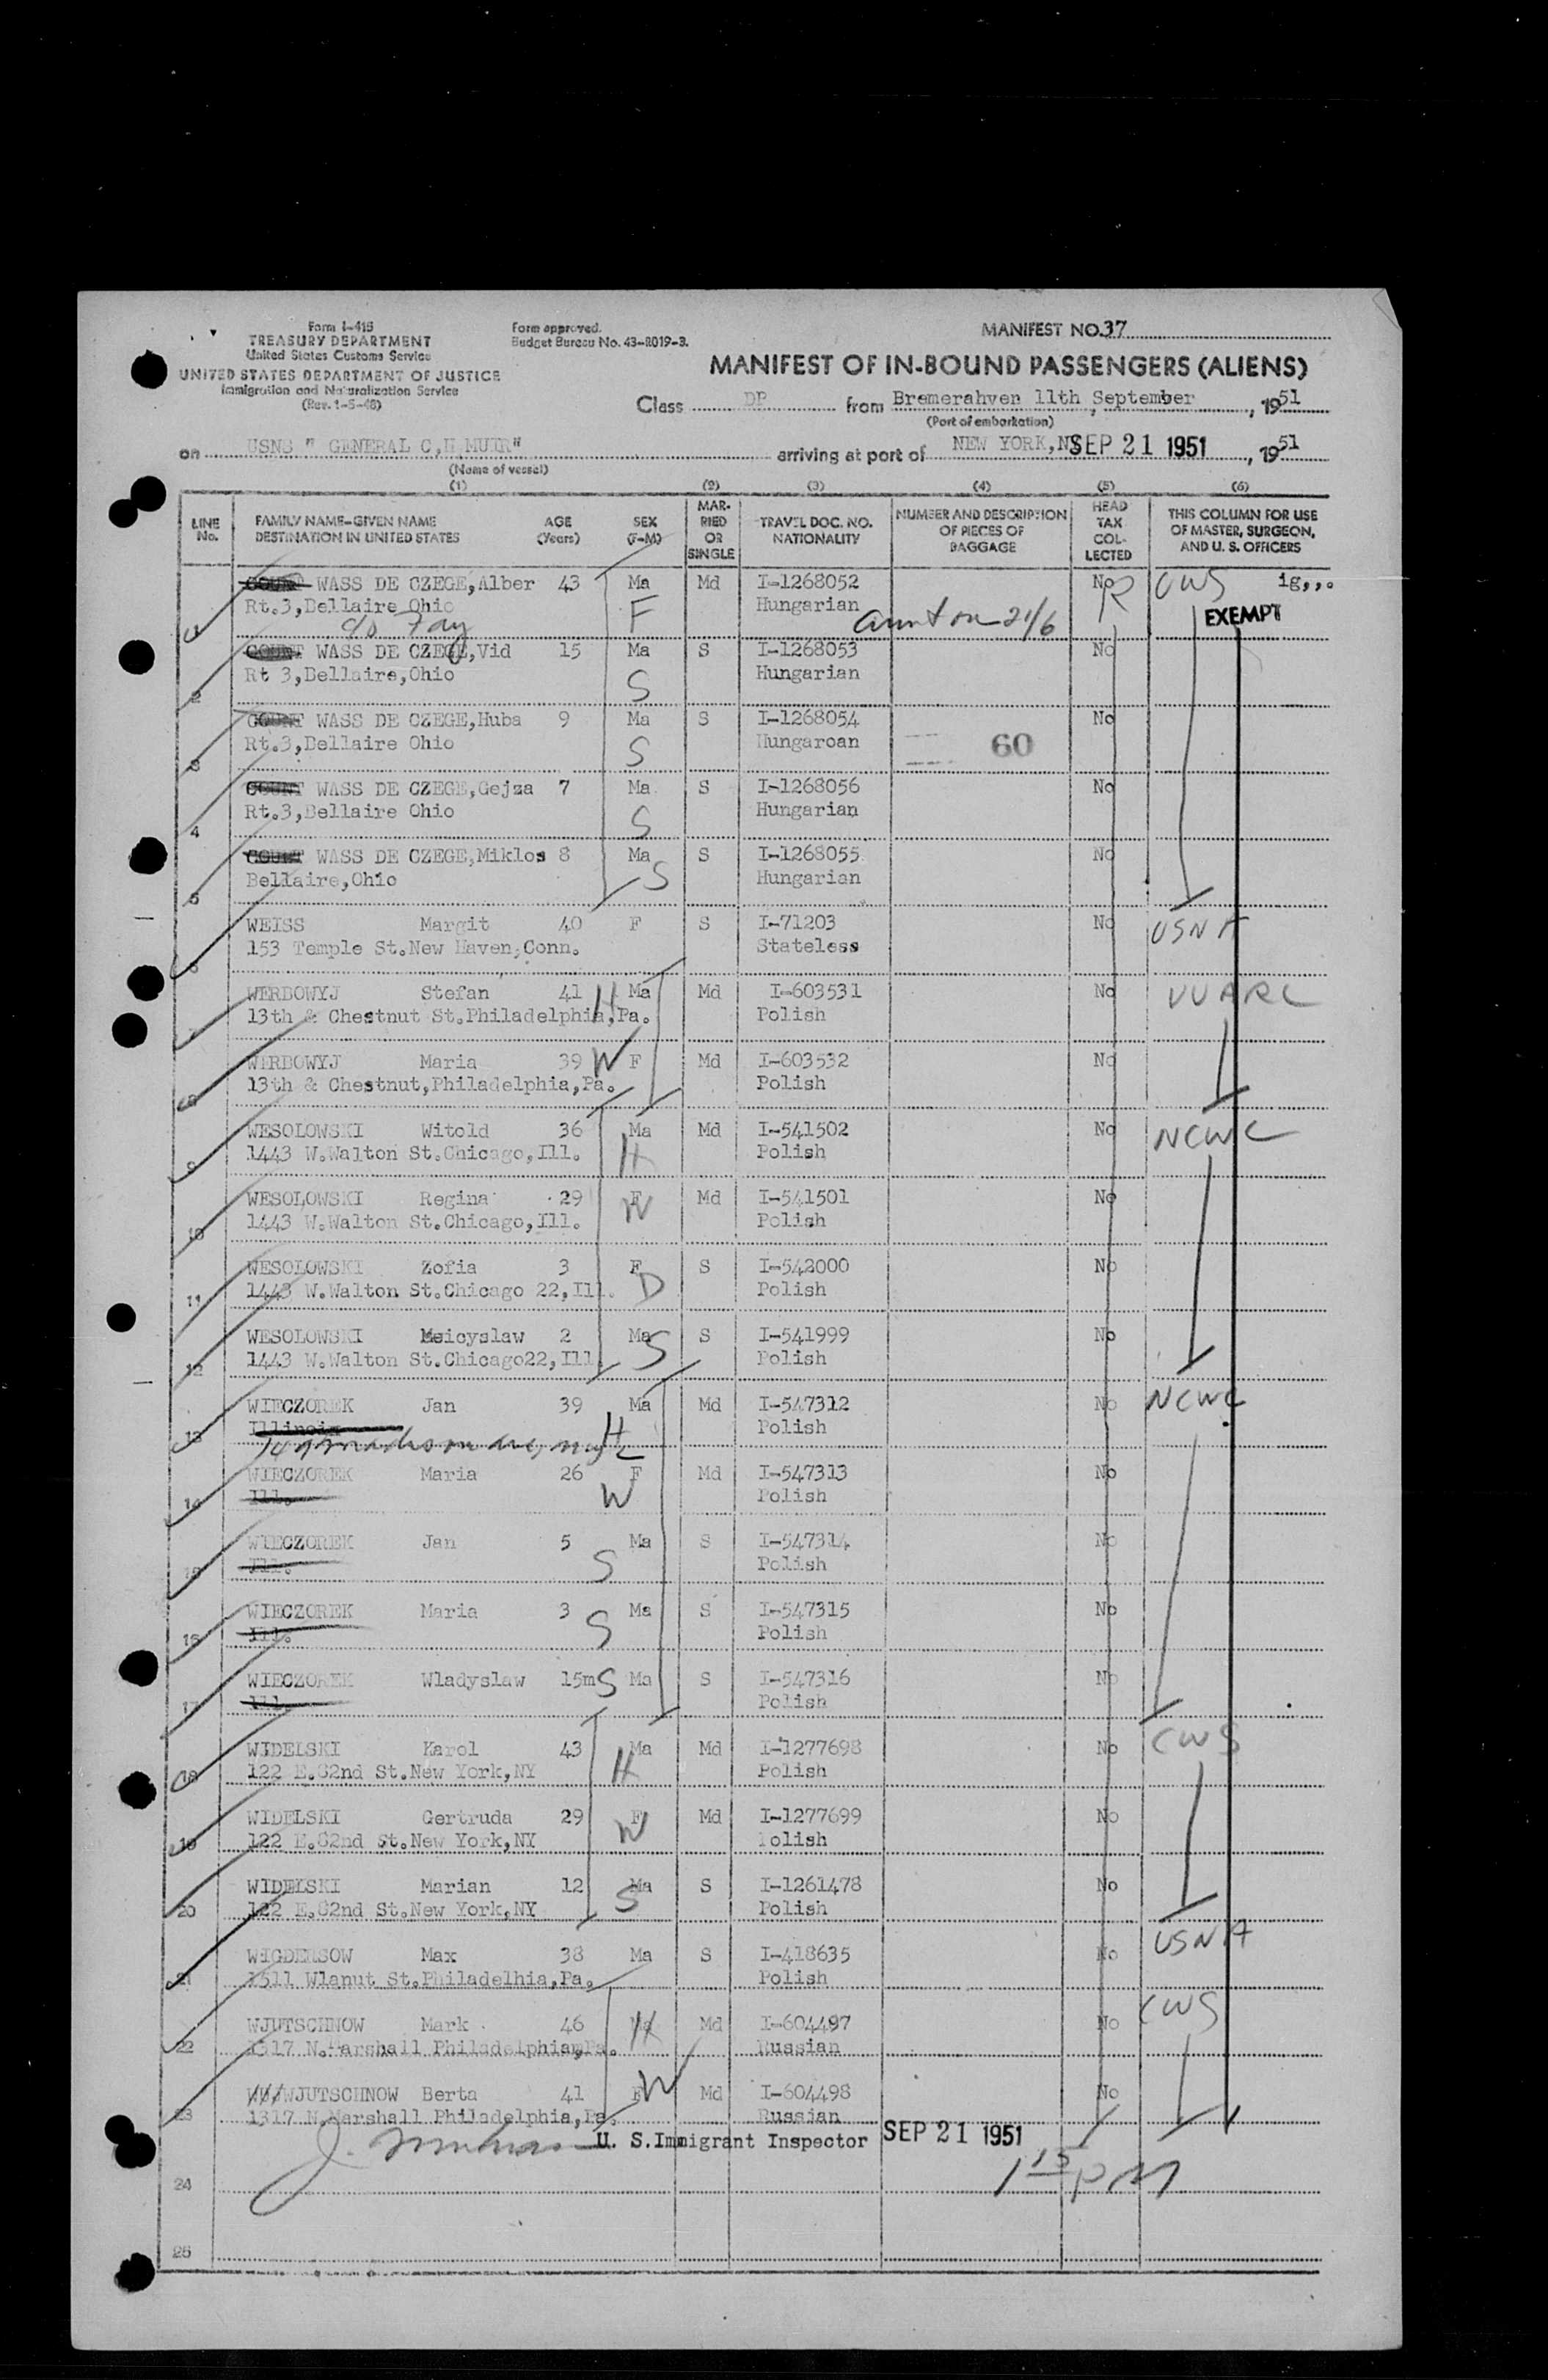 Form I-415
TREASURY DEPARTMENT
United States Customs Service
UNITED STATES DEPARTMENT OF JUSTICE
Immigration and Naturalization Service
(Rev. 1-5-48)
Form approved.
Budget Bureau No. 43-R019-3.
MANIFEST NO. 37
MANIFEST OF IN-BOUND PASSENGERS (ALIENS)
Class DP from Bremerahven 11th September, 1951
(Port of embarkation)
on USNS " GENERAL C,H MUIR" arriving at port of NEW YORK,NY SEP 21 1951, 1951
(Name of vessel)
(1) (2) (3) (4) (5) (6)
LINE No. FAMILY NAME-GIVEN NAME DESTINATION IN UNITED STATES AGE (Years) SEX (F-M) MARRIED OR SINGLE TRAVEL DOC. NO. NATIONALITY NUMBER AND DESCRIPTION OF PIECES OF BAGGAGE HEAD TAX COLLECTED THIS COLUMN FOR USE OF MASTER, SURGEON, AND U. S. OFFICERS
1 COUNT WASS DE CZEGE,Alber 43 Ma Md I-1268052 No R CWS ig,,.
Rt.3,Bellaire Ohio F Hungarian EXEMPT
c/o Fay
2 COUNT WASS DE CZEGE,Vid 15 Ma S I-1268053 No
Rt 3,Bellaire,Ohio S Hungarian
3 COUNT WASS DE CZEGE,Huba 9 Ma S I-1268054 No
Rt.3,Bellaire Ohio S Hungaroan 60
4 COUNT WASS DE CZEGE,Gejza 7 Ma S I-1268056 No
Rt.3,Bellaire Ohio S Hungarian
5 COUNT WASS DE CZEGE,Miklos 8 Ma S I-1268055 No
Bellaire,Ohio S Hungarian
6 WEISS Margit 40 F S I-71203 No USNA
153 Temple St.New Haven,Conn. Stateless
7 WERBOWYJ Stefan 41 H Ma Md I-603531 No UUARC
13th & Chestnut St.Philadelphia,Pa. Polish
8 WERBOWYJ Maria 39 W F Md I-603532 No
13th & Chestnut,Philadelphia,Pa. Polish
9 WESOLOWSKI Witold 36 Ma Md I-541502 No NCWC
1443 W.Walton St.Chicago,Ill. H Polish
10 WESOLOWSKI Regina 29 F Md I-541501 No
1443 W.Walton St.Chicago,Ill. W Polish
11 WESOLOWSKI Zofia 3 F S I-542000 No
1443 W.Walton St.Chicago 22,Ill. D Polish
12 WESOLOWSKI Meicyslaw 2 Ma S I-541999 No
1443 W.Walton St.Chicago22,Ill S Polish
13 WIECZOREK Jan 39 Ma Md I-547312 No NCWC
Illinois H Polish
14 WIECZOREK Maria 26 F Md I-547313 No
Ill. W Polish
15 WIECZOREK Jan 5 Ma S I-547314 No
Ill. S Polish
16 WIECZOREK Maria 3 Ma S I-547315 No
Ill. S Polish
17 WIECZOREK Wladyslaw 15m S Ma S I-547316 No
Ill. Polish
18 WIDELSKI Karol 43 Ma Md I-1277698 No CWS
122 E.82nd St.New York,NY H Polish
19 WIDELSKI Gertruda 29 F Md I-1277699 No
122 E.82nd St.New York,NY W Polish
20 WIDELSKI Marian 12 Ma S I-1261478 No
122 E.82nd St.New York,NY S Polish
21 WIGDERSOW Max 38 Ma S I-418635 No USNA
1511 Wlanut St.Philadelhia,Pa. Polish
22 WJUTSCHNOW Mark 46 H Md I-604497 No CWS
1317 N.Marshall Philadelphia,Pa. Russian
23 WJUTSCHNOW Berta 41 F W Md I-604498 No
1317 N.Marshall Philadelphia,Pa. Russian
U. S.Immigrant Inspector SEP 21 1951
24 1 15 PM
25